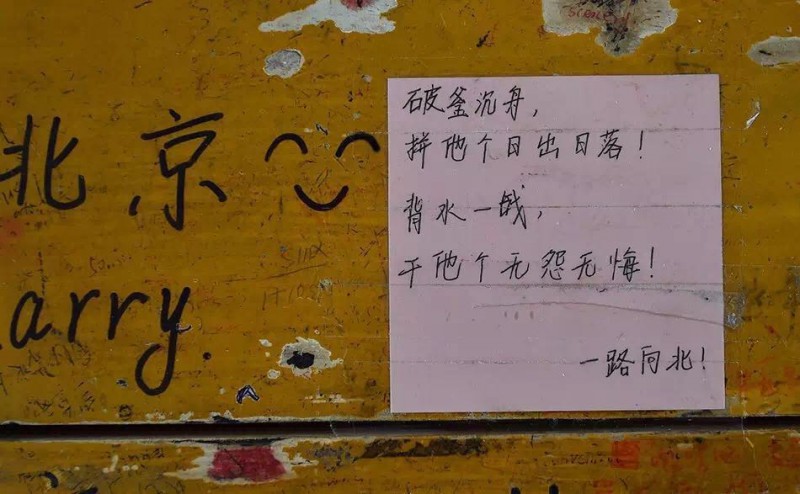 北京
arry.
破釜沉舟,
拼他个日出日落!
背水一战,
干他个无怨无悔!
一路向北!